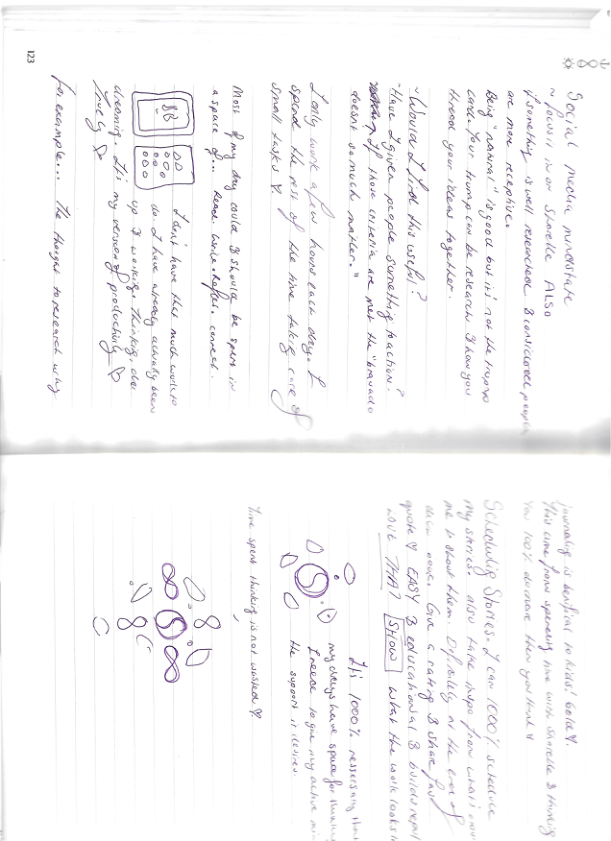 Social media mindstate
~ focus in on Sharelle ALSO
if something is well researched & considered people
are more receptive.
Being "normal" is good but it's not the trump
card. Your trump can be research & how you
thread your ideas together.
~ Would I find this useful?
~ Have I given people something to action?
If those criteria are met the "bravado
doesn't so much matter."
I only work a few hours each day. I
spend the rest of the time taking care of
small tasks
Most of my day could & should be spent in
a space of... Read. Write. Reflect. Connect.
I don't have that much work to
do. I have already actually been
up & working. Thinking, day
dreaming. It's my version of productivity
lovely
for example... The thought to research why
123
journaling is benificial to kids! Gold.
This came from spending time with Sharelle & thinking
You 100% do more than you think
Scheduling Stories. I can 1000% schedule
my stories. Also take snaps from what I
me & about them. Definitely at the end of
each book. Give a rating & share fav
quote EASY & educational & builds
LOVE THAT SHOW what the work looks
It's 1000% nessersary that
my days have space for thinking
I need to give my active
the support it desires
Time spent thinking is not wasted